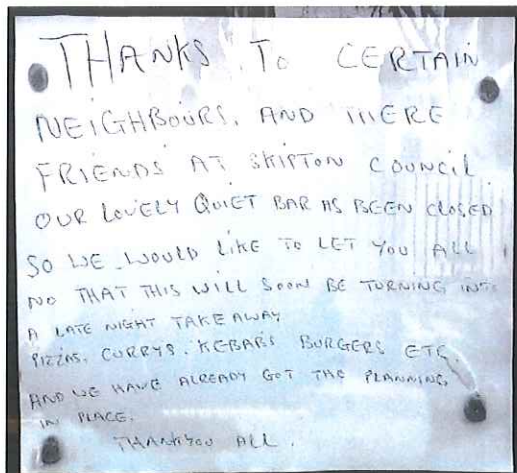 THANKS TO CERTAIN
NEIGHBOURS. AND THERE
FRIENDS AT SKIPTON COUNCIL
OUR LOVELY QUIET BAR AS BEEN CLOSED
SO WE WOULD LIKE TO LET YOU ALL
NO THAT THIS WILL SOON BE TURNING INTO
A LATE NIGHT TAKE AWAY
PIZZAS. CURRYS. KEBABS BURGERS ETC.
AND WE HAVE ALREADY GOT THE PLANNING
IN PLACE.
THANKYOU ALL.